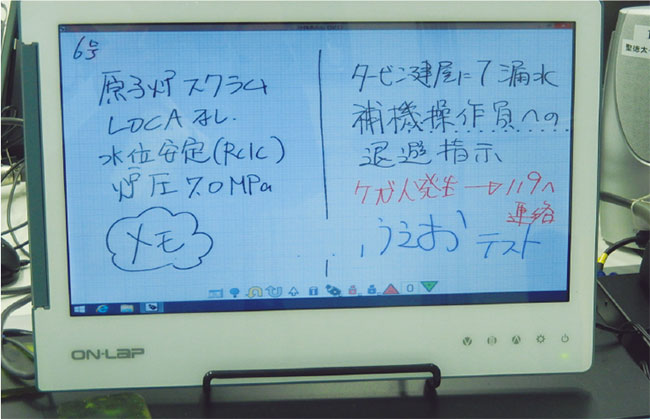 6号
原子炉スクラム
LOCAなし.
水位安定(RCIC)
炉圧 7.0 MPa
メモ
タービン建屋にて漏水
補機操作員への
退避指示
ケガ人発生 → 119へ
連絡
うえお テスト
ON-LAP
聖徳太